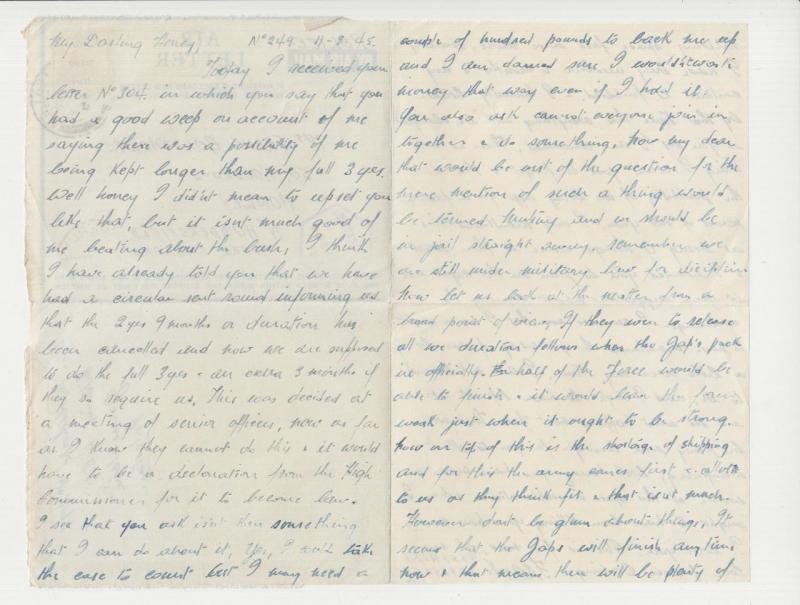 My Darling Honey, Nº 249. 11-8-45.
Today I received your
letter Nº 304. in which you say that you
had a good weep on account of me
saying there was a possibility of me
being kept longer than my full 3 yrs.
Well honey I didn't mean to upset you
like that, but it isnt much good of
me beating about the bush, I think
I have already told you that we have
had a circular sent round informing us
that the 2 yrs 9 months or duration has
been cancelled and now we are supposed
to do the full 3 yrs + an extra 3 months if
they so require us. This was decided at
a meeting of senior officers, now as far
as I know they cannot do this + it would
have to be a declaration from the High
Commissioner for it to become law.
I see that you ask isn't there something
that I can do about it, Yes, I could take
the case to court but I may need a
couple of hundred pounds to back me up
and I am darned sure I wouldn't waste
money that way even if I had it.
You also ask cannot everyone join in
together & do something. Now my dear
that would be out of the question for the
mere mention of such a thing would
be termed mutiny and we should be
in jail straight away, remember we
are still under military law for discipline
Now let us look at the matter from a
broad point of view, If they were to release
all we duration fellows when the Jap's pack
in officially. half of the Force would be
able to finish + it would leave the force
weak just when it ought to be strong.
now on top of this is the shortage of shipping
and for this the army comes first +
to us as they think fit + that isnt much.
However dont be glum about things, It
seems that the Japs will finish anytime
now + that means there will be plenty of